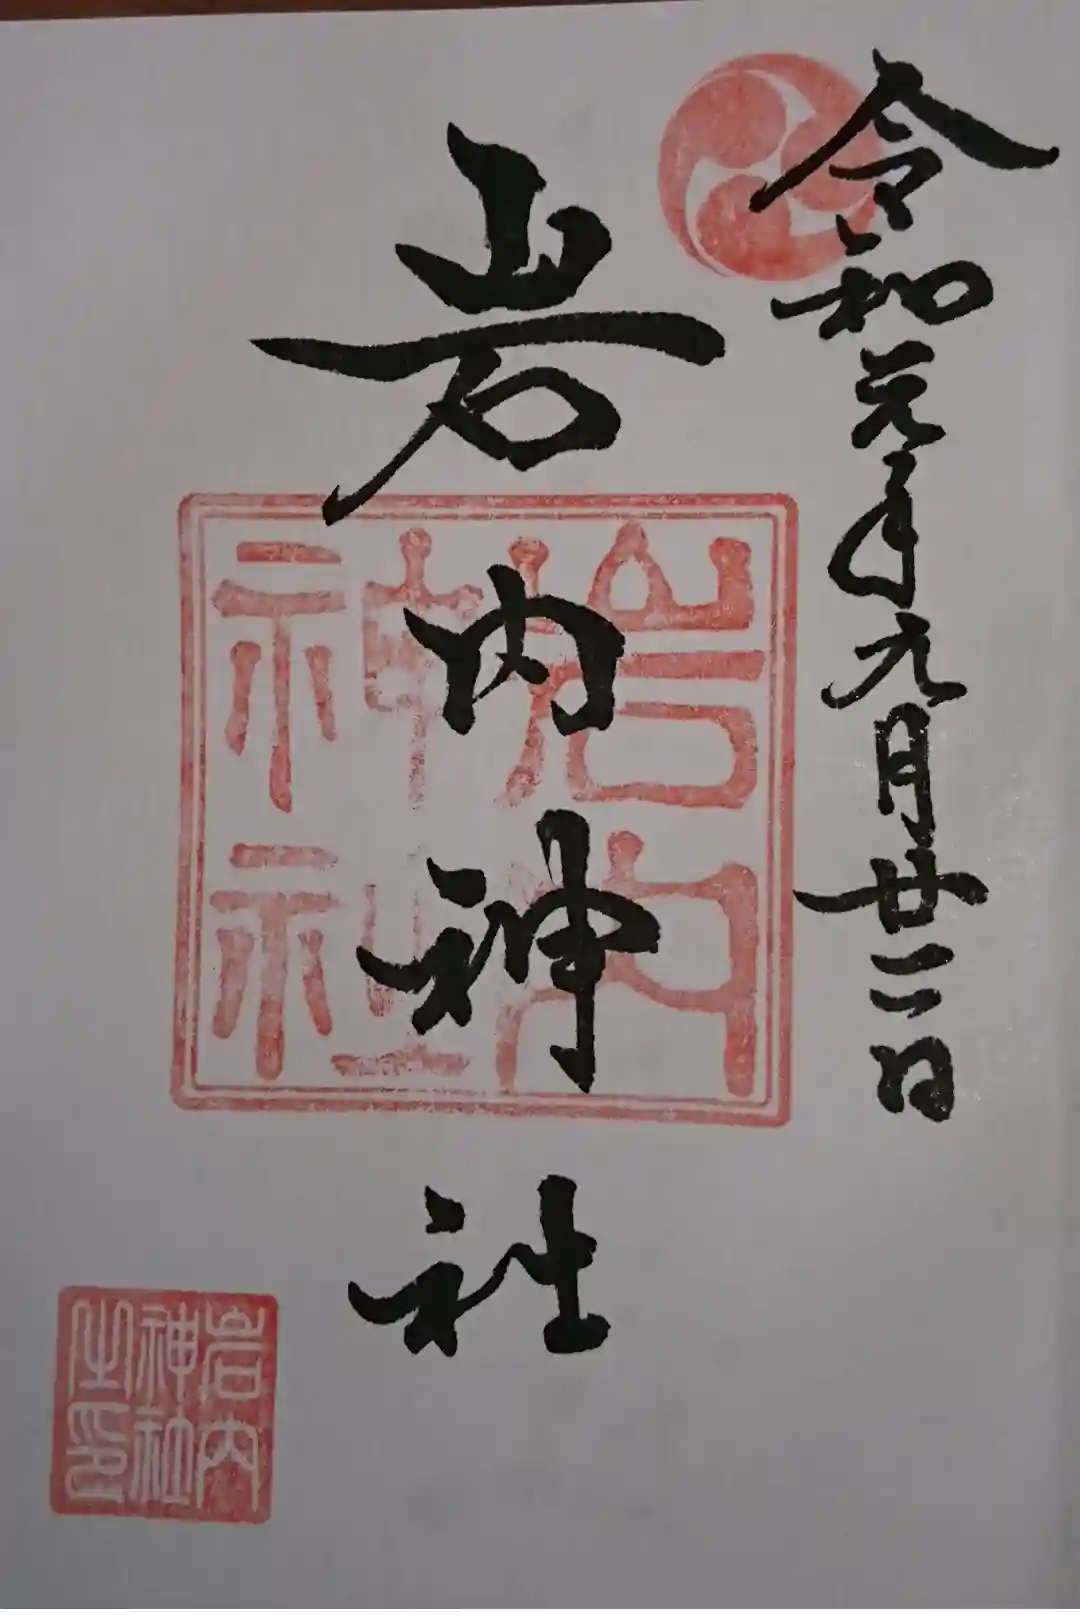 令和元年九月廿二日
岩内神社
岩内
神社
岩内
神社
之印